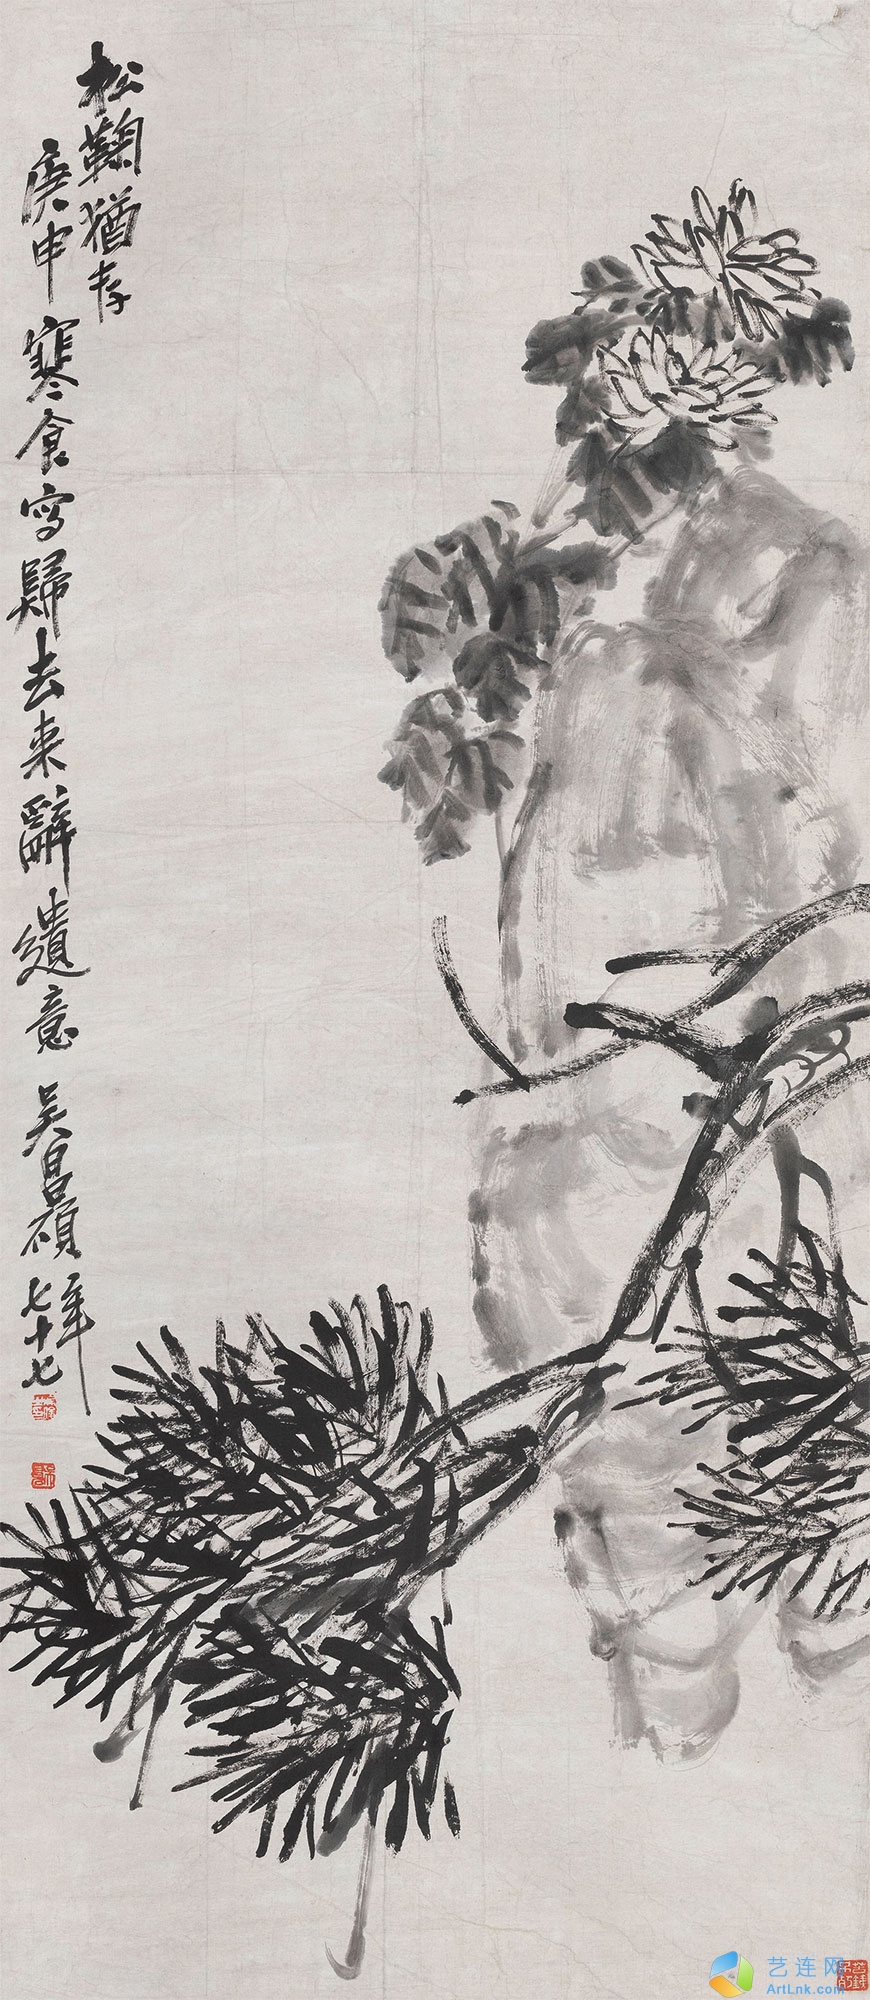 松鞠猶存
庚申寒食寫歸去來辭遺意吳昌碩年
七十七
艺连网
ArtLnk.com